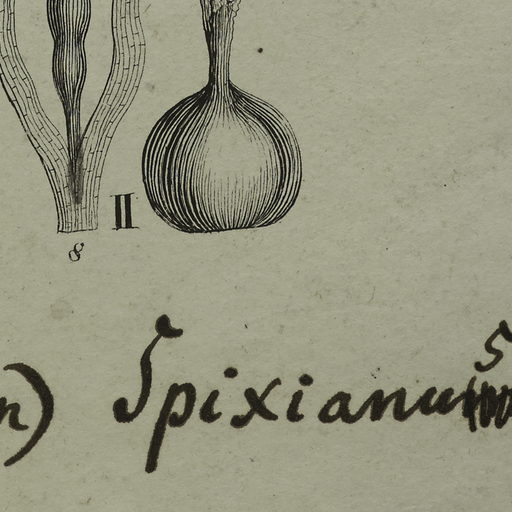 II
8
n) Spixianus